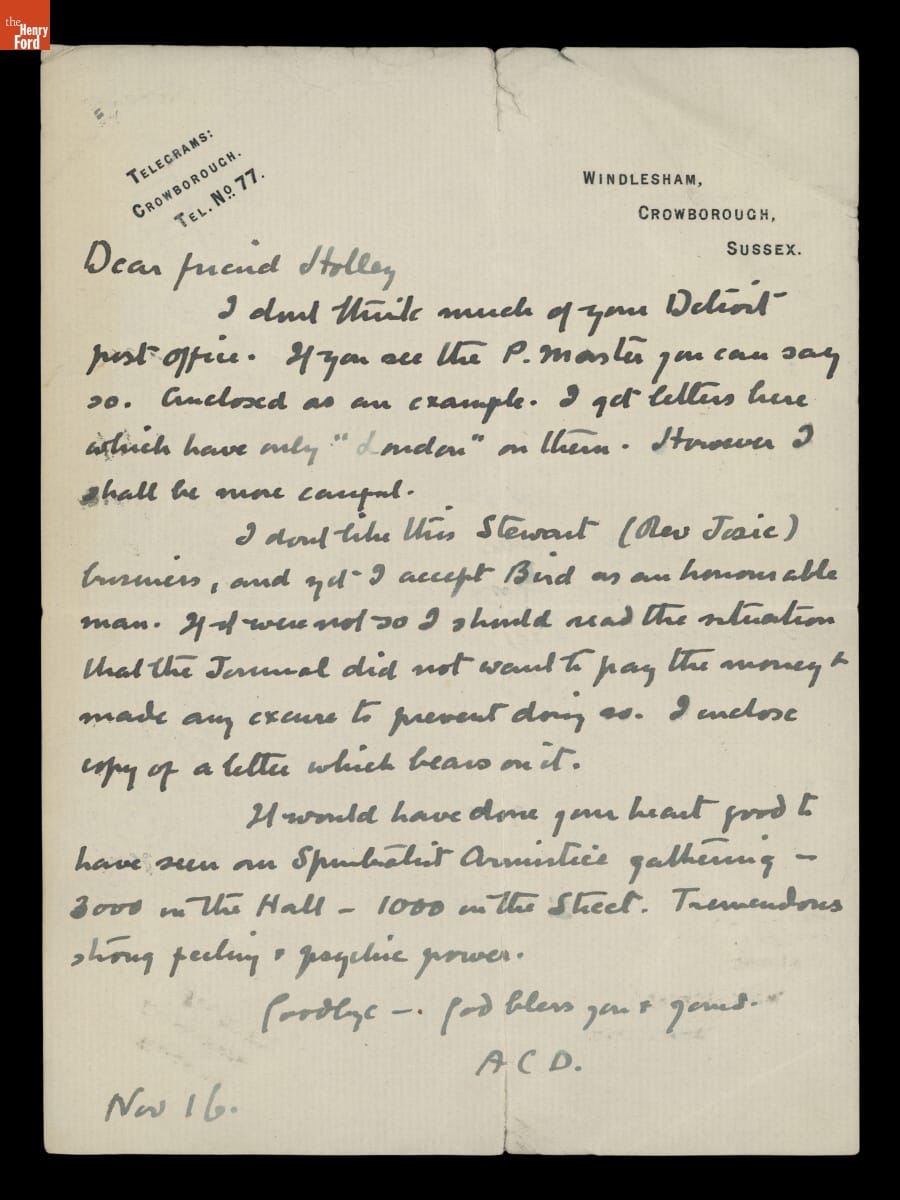 the
Henry
Ford
TELEGRAMS:
CROWBOROUGH.
TEL. No 77.
WINDLESHAM,
CROWBOROUGH,
SUSSEX.
Dear friend Holley
I dont think much of your Detroit
post office. If you see the P. Master you can say
so. Enclosed as an example. I get letters here
which have only "London" on them. However I
shall be more careful.
I dont like this Stewart (Rev Josie)
business, and yet I accept Bird as an honourable
man. If it were not so I should read the situation
that the Journal did not want to pay the money &
made any excuse to prevent doing so. I enclose
copy of a letter which bears on it.
It would have done your heart good to
have seen our Spiritualist Armistice gathering –
3000 in the Hall – 1000 in the Street. Tremendous
strong feeling & psychic power.
Goodbye –. God bless you & yours.
A C D.
Nov 16.